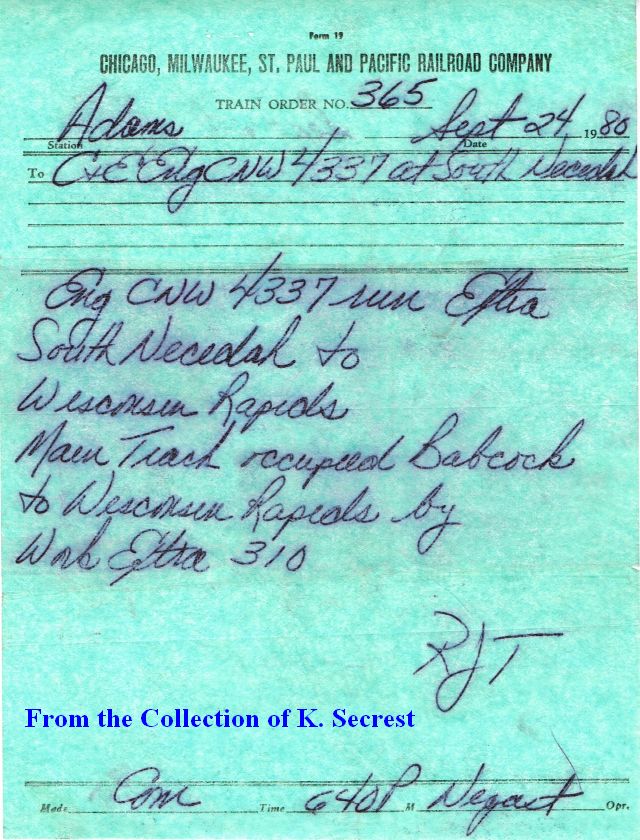 Form 19
CHICAGO, MILWAUKEE, ST. PAUL AND PACIFIC RAILROAD COMPANY
TRAIN ORDER NO. 365
Adams Sept 24, 1980
Station Date
To C+E Eng CNW 4337 at South Necedah
Eng CNW 4337 run Extra
South Necedah to
Wisconsin Rapids
Main Track occupied Babcock
to Wisconsin Rapids by
Work Extra 310
RJT
From the Collection of K. Secrest
Made Com Time 640P M Opr.